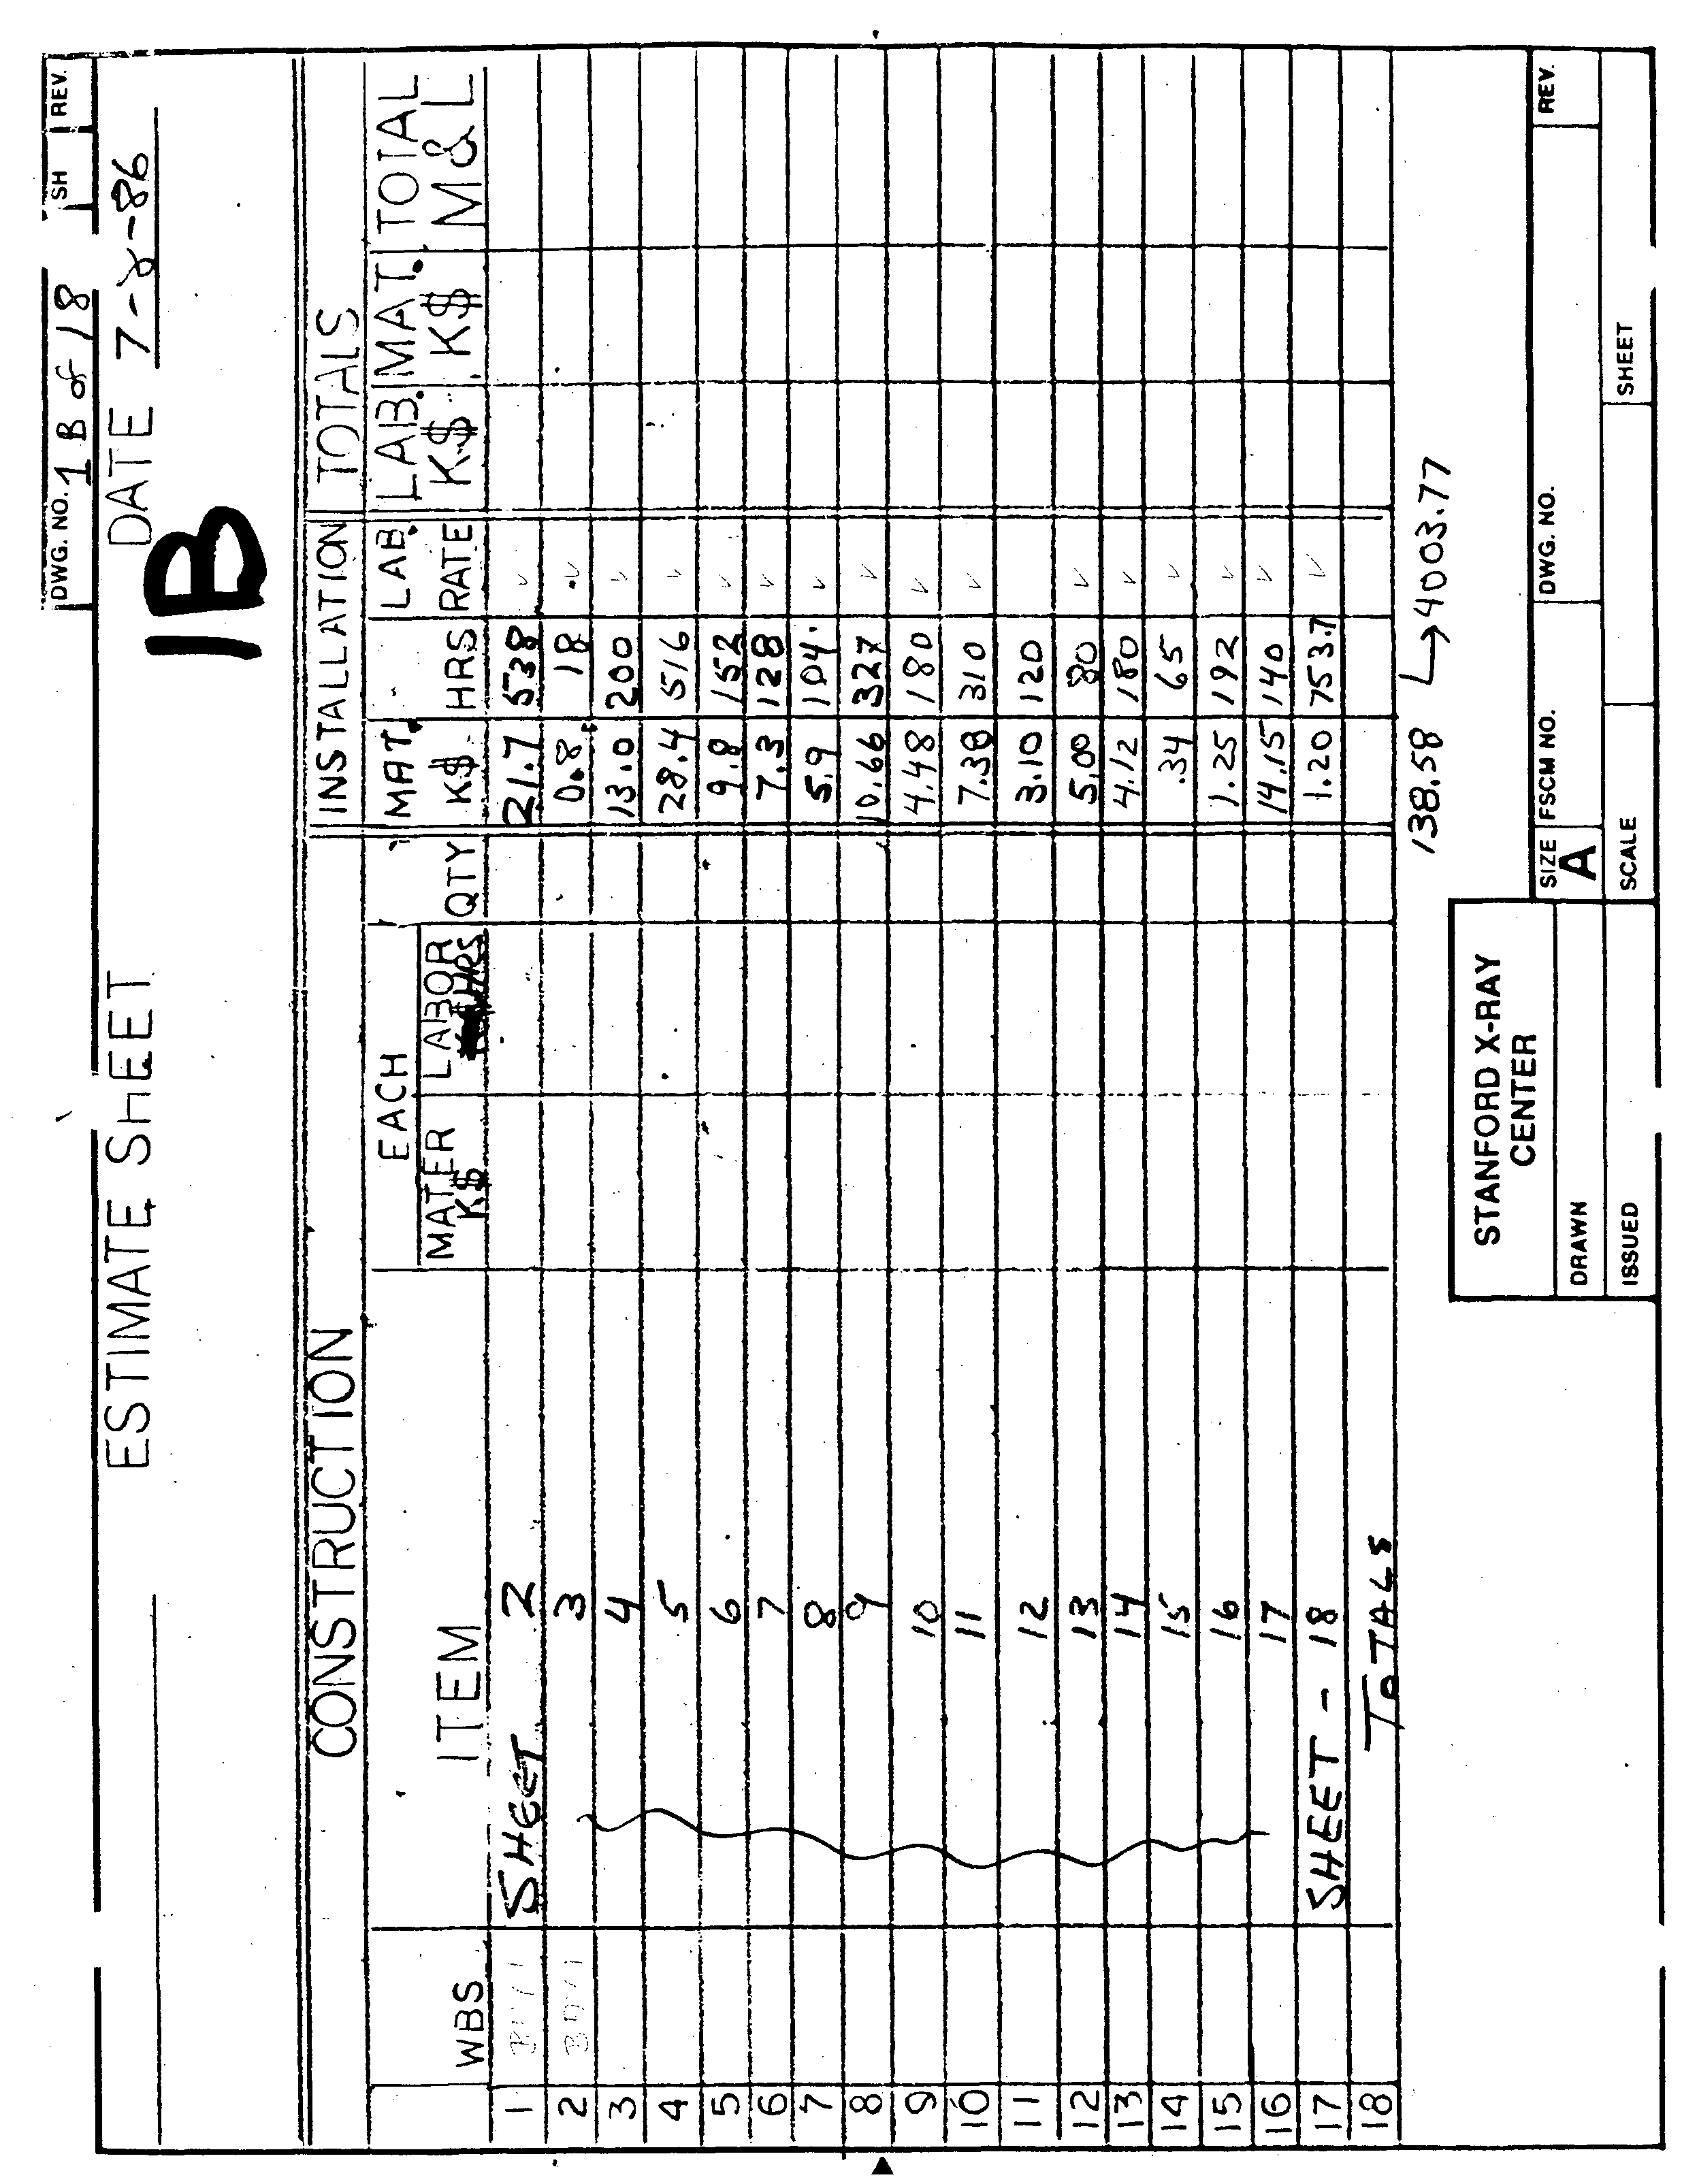 DWG. NO. 1 B of 18 SH REV.
ESTIMATE SHEET DATE 7-8-86
1B
CONSTRUCTION INSTALLATION TOTALS
EACH MAT. LAB. LAB. MAT. TOTAL
WBS ITEM MATER K$ LABOR HRS QTY K$ HRS RATE K$ K$ M & L
1 SHEET 2 21.7 538 ✓
2 3 0.8 18 ✓
3 4 13.0 200 ✓
4 5 28.4 516 ✓
5 6 9.8 152 ✓
6 7 7.3 128 ✓
7 8 5.9 104. ✓
8 9 10.66 327 ✓
9 10 4.48 180 ✓
10 11 7.38 310 ✓
11 12 3.10 120
12 13 5.00 80 ✓
13 14 4.12 180 ✓
14 15 .34 65 ✓
15 16 1.25 192 ✓
16 17 14.15 140 ✓
17 SHEET - 18 1.20 753.7 ✓
18 TOTALS
138.58 → 4003.77
STANFORD X-RAY
CENTER
SIZE A FSCM NO. DWG. NO. REV.
DRAWN
ISSUED SCALE SHEET